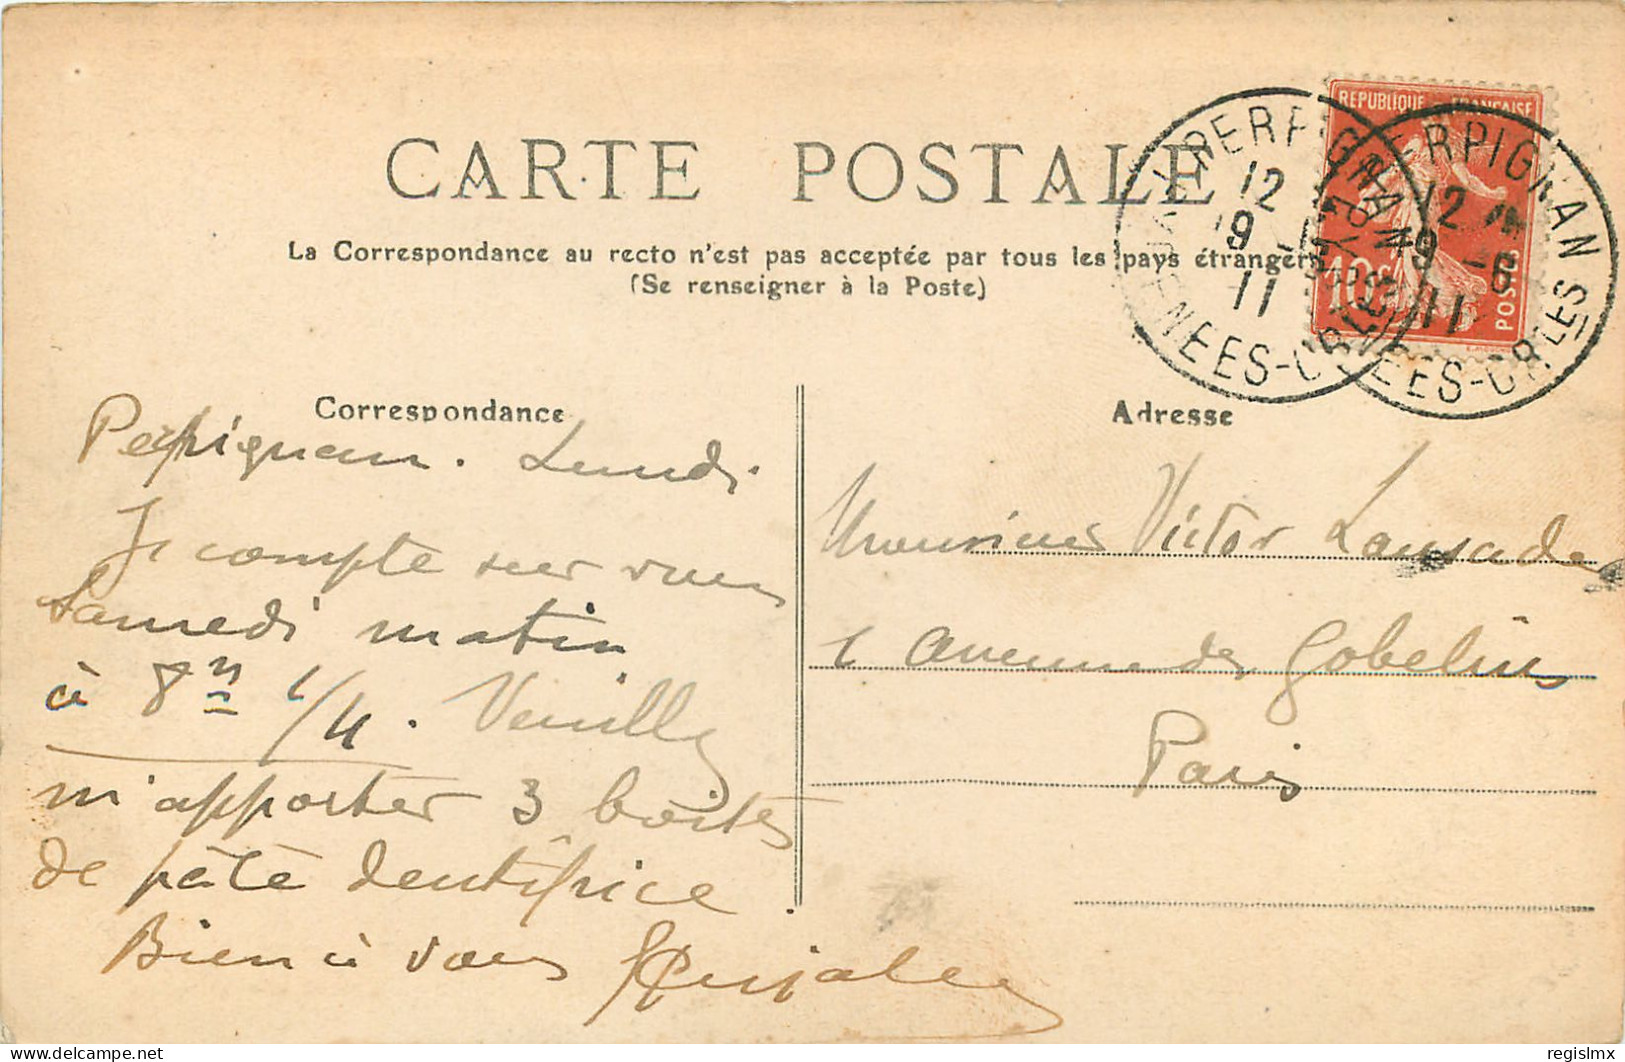 CARTE POSTALE
La Correspondance au recto n'est pas acceptée par tous les pays étrangers
(Se renseigner à la Poste)
REPUBLIQUE FRANÇAISE
10c
POSTES
PERPIGNAN
12
9 -
11
PYRENEES-ORLES
PERPIGNAN
12
9 -6
11
PYRENEES-ORLES
Correspondance
Perpignan. Lundi
Je compte sur vous
Samedi matin
à 8h 1/4. Veuillez
m'apporter 3 boîtes
de pâte dentifrice.
Bien à vous
Adresse
Monsieur Victor Lansade
1 avenue des Gobelins
Paris
delcampe.net
regislmx